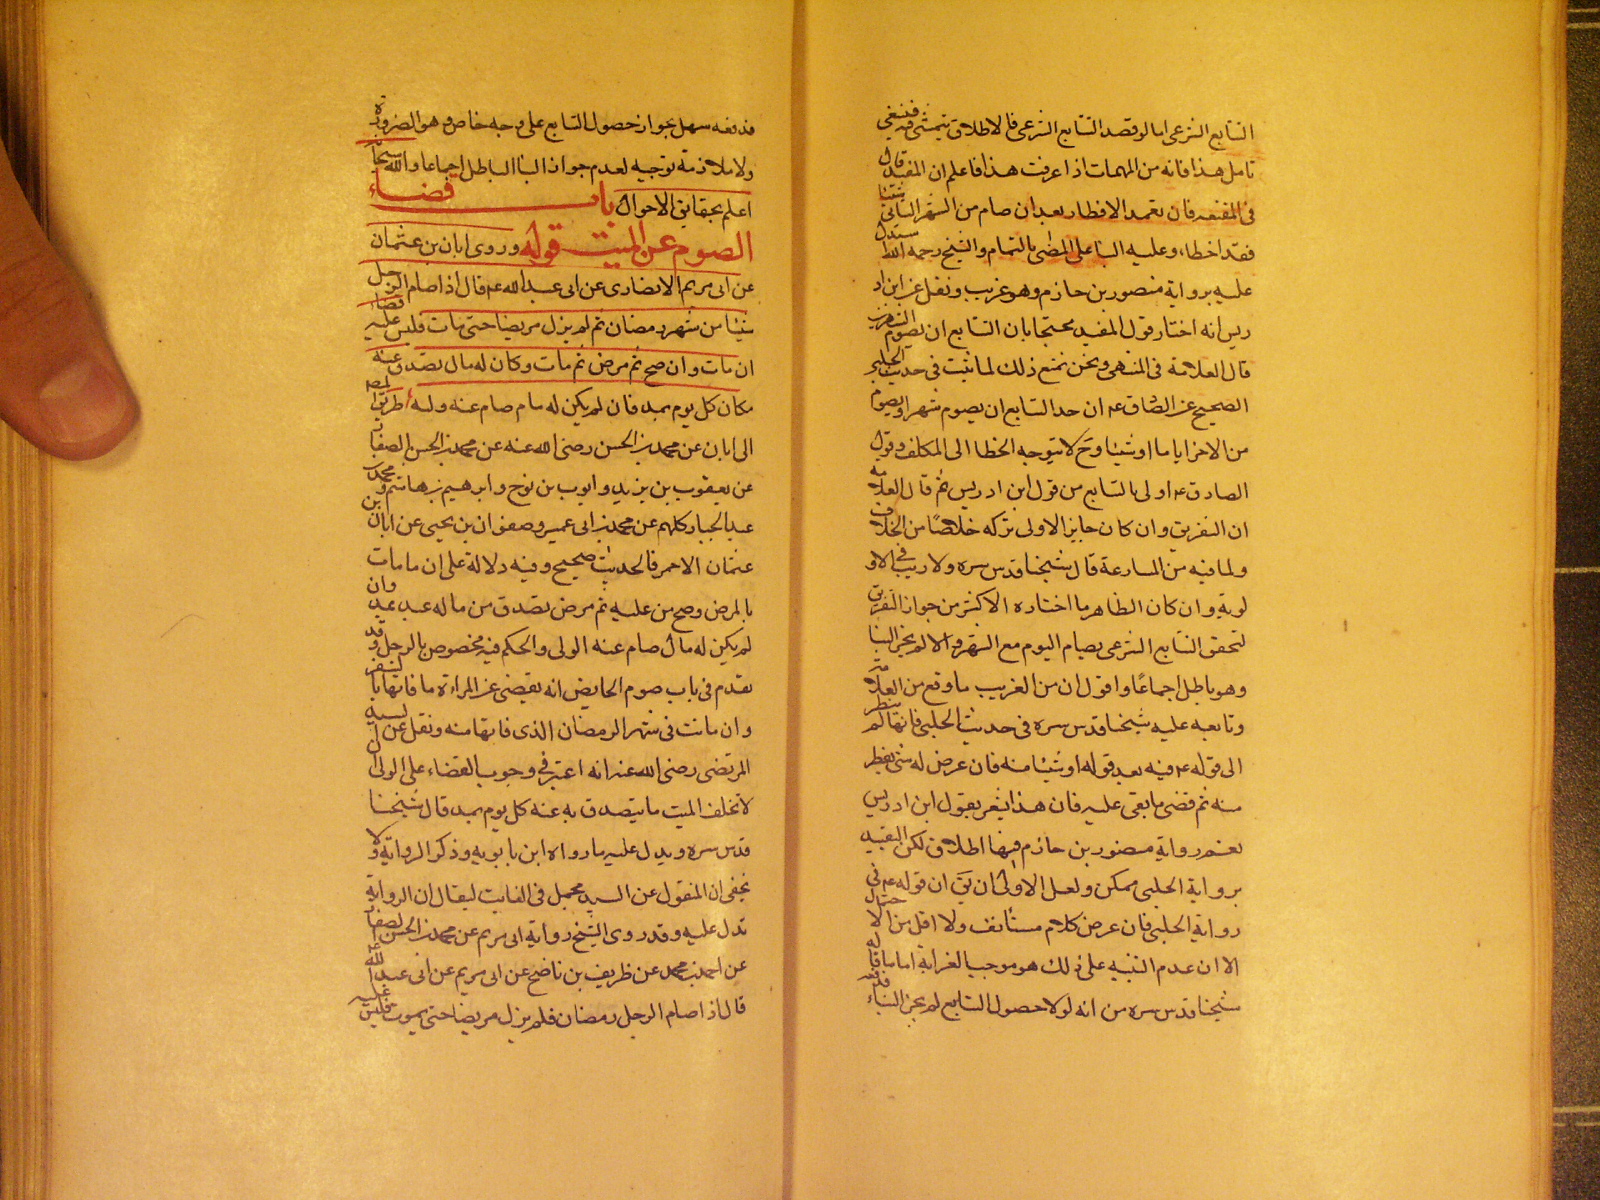 التتابع الشرعى اما لو قصد التتابع الشرعى فالاطلاق يتمشى فيه فينبغى
تامل هذا فانه من المهمات اذا عرفت هذا فاعلم ان المفيد قال
فى المقنعه فان تعمد الافطار بعد ان صام من الشهر الثانى شيئا
فقد اخطاء وعليه البنا على المضى بالتمام والشيخ رحمه الله يستدل
عليه برواية منصور بن حازم وهو غريب ونقل عن ابن اد
ريس انه اختار قول المفيد محتجا بان التتابع ان يصوم الشهرين
قال العلامة فى المنتهى ونحن نمنع ذلك لما ثبت فى حديث الحلبى
الصحيح عن الصادق ع ان حد التتابع ان يصوم شهرا ويصوم
من الاخر اياما او شيئا وح لا يتوجه الخطا الى المكلف وقول
الصادق ع اولى بالتتابع من قول ابن ادريس ثم قال العلامه
ان التفريق وان كان جايز الاولى تركه خلاصًا من الخلاف
ولما فيه من المسارعة قال شيخنا قدس سره ولا ريب فى الاو
لوية وان كان الظاهر ما اختاره الاكثر من جواز التفريق
لتحقق التتابع الشرعى بصيام اليوم مع الشهر والا لم يجز البنا
وهو باطل اجماعًا واقول ان من الغريب ما وقع من العلامة
وتابعه عليه شيخنا قدس سره فى حديث الحلبى فانهما لم ينظر
الى قوله ع فيه بعد قوله او شيئا منه فان عرض له شئ يفطر
منه ثم قضى ما بقى عليه فان هذا يشعر بقول ابن ادريس
نعم رواية منصور بن حازم فيها اطلاق لكن التقييد
برواية الحلبى ممكن ولعل الاولى ان يق ان قوله ع فى
رواية الحلبى فان عرض كلام مستأنف ولا اقل من الاحتمال
الا ان عدم التنبيه على ذلك هو موجب الغرابة اما ما قاله
شيخنا قدس سره من انه لولا حصول التتابع لم يجز البناء
فدفعه سهل بجواز حصول التتابع على وجه خاص وهو الضرورة
ولا ملازمة توجيه لعدم جواز البنا الباطل اجماعا والله سبحانه
اعلم بحقايق الاحوال باب قضاء
الصوم عن الميت قوله وروى ابان بن عثمان
عن ابى مريم الانصارى عن ابى عبد الله ع قال اذا صام الرجل
شيئا من شهر رمضان ثم لم يزل مريضا حتى مات فليس عليه قضاء
ان مات وان صح ثم مرض ثم مات وكان له مال تصدق عنه
مكان كل يوم بمد فان لم يكن له مام صام عنه وليه طريق المصـ
الى ابان عن محمد بن الحسن رضى الله عنه عن محمد بن الحسن الصفار
عن يعقوب بن يزيد وايوب بن نوح وابرهيم بن هاشم ومحمد بن
عبد الجبار كلهم عن محمد بن ابى عمير وصفوان بن يحيى عن ابان بن
عثمان الاحمر فالحديث صحيح وفيه دلالة على ان ما مات
بالمرض وصح من عليه ثم مرض تصدق من ماله عد بمد وان
لم يكن له مال صام عنه الولى والحكم فيه مخصوص بالرجل وقد
تقدم فى باب صوم الحايض انه يقضى عن المراءة ما فاتها بالسفر
وان ماتت فى شهر الرمضان الذى فاتها منه ونقل عن السيد
المرتضى رضى الله عنه انه اعتبر فى وجوب القضاء على الولى ان
لا يخلف الميت ما يتصدق به عنه كل يوم بمد قال شيخنا
قدس سره ويدل عليه ما رواه ابن بابويه وذكر الرواية ولا
يخفى ان المنقول عن السيد مجمل فى الفايت ليقال ان الرواية
تدل عليه وقد روى الشيخ رواية ابى مريم عن محمد بن الحسن الصفار
عن احمد بن محمد عن ظريف بن ناضح عن ابى مريم عن ابى عبد الله ع
قال اذا صام الرجل رمضان فلم يزل مريضا حتى يموت فليس عليه